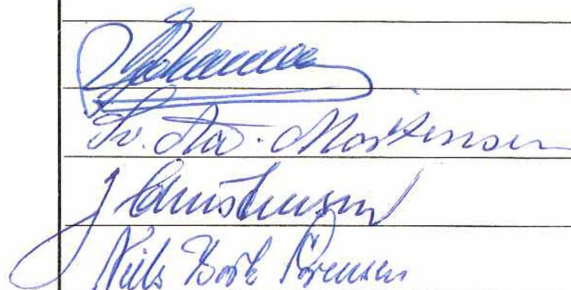 Sv. Aa. Mortensen
J Christensen
Niels Bork Sørensen